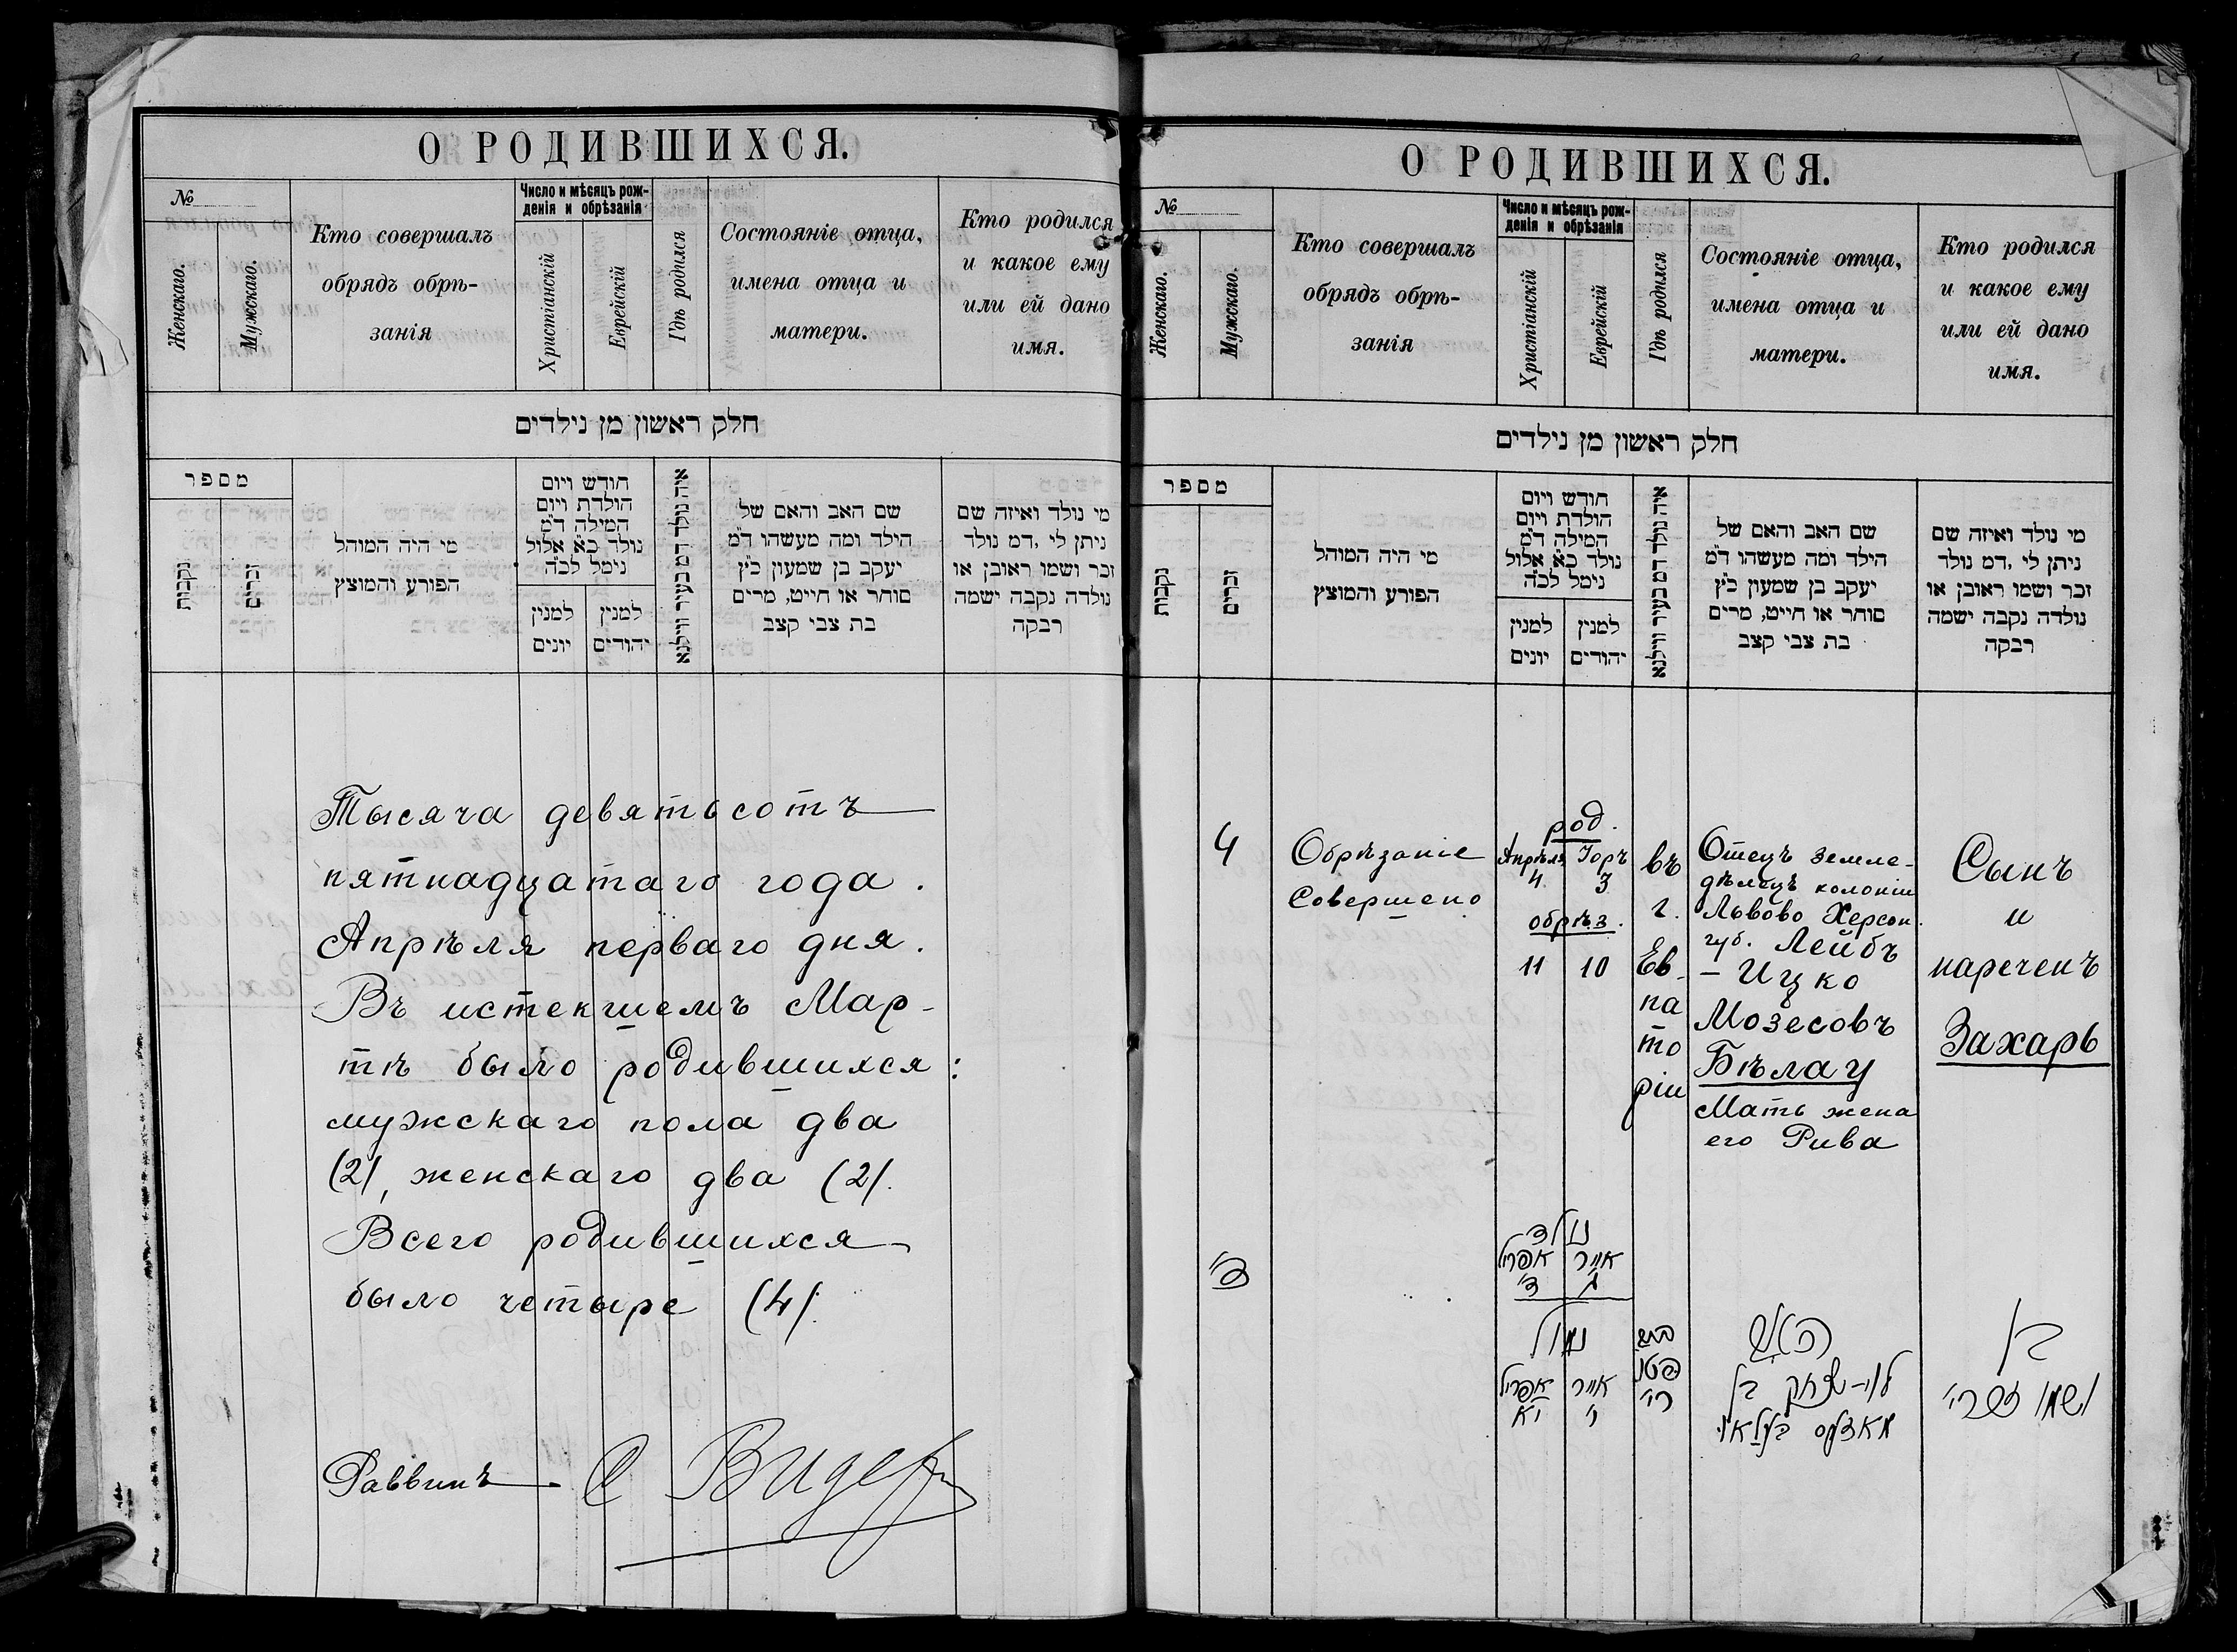 О РОДИВШИХСЯ.
№
Женскаго.
Мужскаго.
Кто совершалъ
обрядъ обрѣ-
занія
Число и мѣсяцъ рож-
денія и обрѣзанія
Христіанскій
Еврейскій
Гдѣ родился
Состояніе отца,
имена отца и
матери.
Кто родился
и какое ему
или ей дано
имя.
חלק ראשון מן נילדים
מספר
נקבות
זכרים
מי היה המוהל
הפורע והמוצץ
חודש ויום
הולדת ויום
המילה ד"מ
נולד כ"א אלול
נימל לכ"ה
למנין
יונים
למנין
יהודים
איה נולד דמ בעיר ווילנא
שם האב והאם של
הילד ומה מעשהו ד"מ
יעקב בן שמעון כ"ץ
סוחר או חייט, מרים
בת צבי קצב
מי נולד ואיזה שם
ניתן לי, דמ נולד
זכר ושמו ראובן או
נולדה נקבה ישמה
רבקה
Тысяча девятьсотъ
пятнадцатаго года.
Апрѣля перваго дня.
Въ истекшемъ Мар-
тѣ было родившихся:
мужскаго пола два
(2/, женскаго два (2/.
Всего родившихся
было четыре (4/.
Раввинъ
О РОДИВШИХСЯ.
№
Женскаго.
Мужскаго.
Кто совершалъ
обрядъ обрѣ-
занія
Число и мѣсяцъ рож-
денія и обрѣзанія
Христіанскій
Еврейскій
Гдѣ родился
Состояніе отца,
имена отца и
матери.
Кто родился
и какое ему
или ей дано
имя.
חלק ראשון מן נילדים
מספר
נקבות
זכרים
מי היה המוהל
הפורע והמוצץ
חודש ויום
הולדת ויום
המילה ד"מ
נולד כ"א אלול
נימל לכ"ה
למנין
יונים
למנין
יהודים
איה נולד דמ בעיר ווילנא
שם האב והאם של
הילד ומה מעשהו ד"מ
יעקב בן שמעון כ"ץ
סוחר או חייט, מרים
בת צבי קצב
מי נולד ואיזה שם
ניתן לי, דמ נולד
זכר ושמו ראובן או
נולדה נקבה ישמה
רבקה
4
Обрѣзаніе
Совершено
род.
Апрѣля Іоръ
4. 3
обрѣз.
11 10
въ
г.
Ев-
па
то
ріи
Отецъ земле-
дѣлецъ колоніи
Львово Херсон.
губ. Лейбъ
- Ицко
Мозесовъ
Бѣлау
Мать жена
его Рива
Сынъ
и
нареченъ
Захарь
ד'
נולד
אפריל אייר
ד' ג
נמול
אפריל אייר
יא י'
האיש
לוי-יצחק בן
בן
ושמו זכרי'